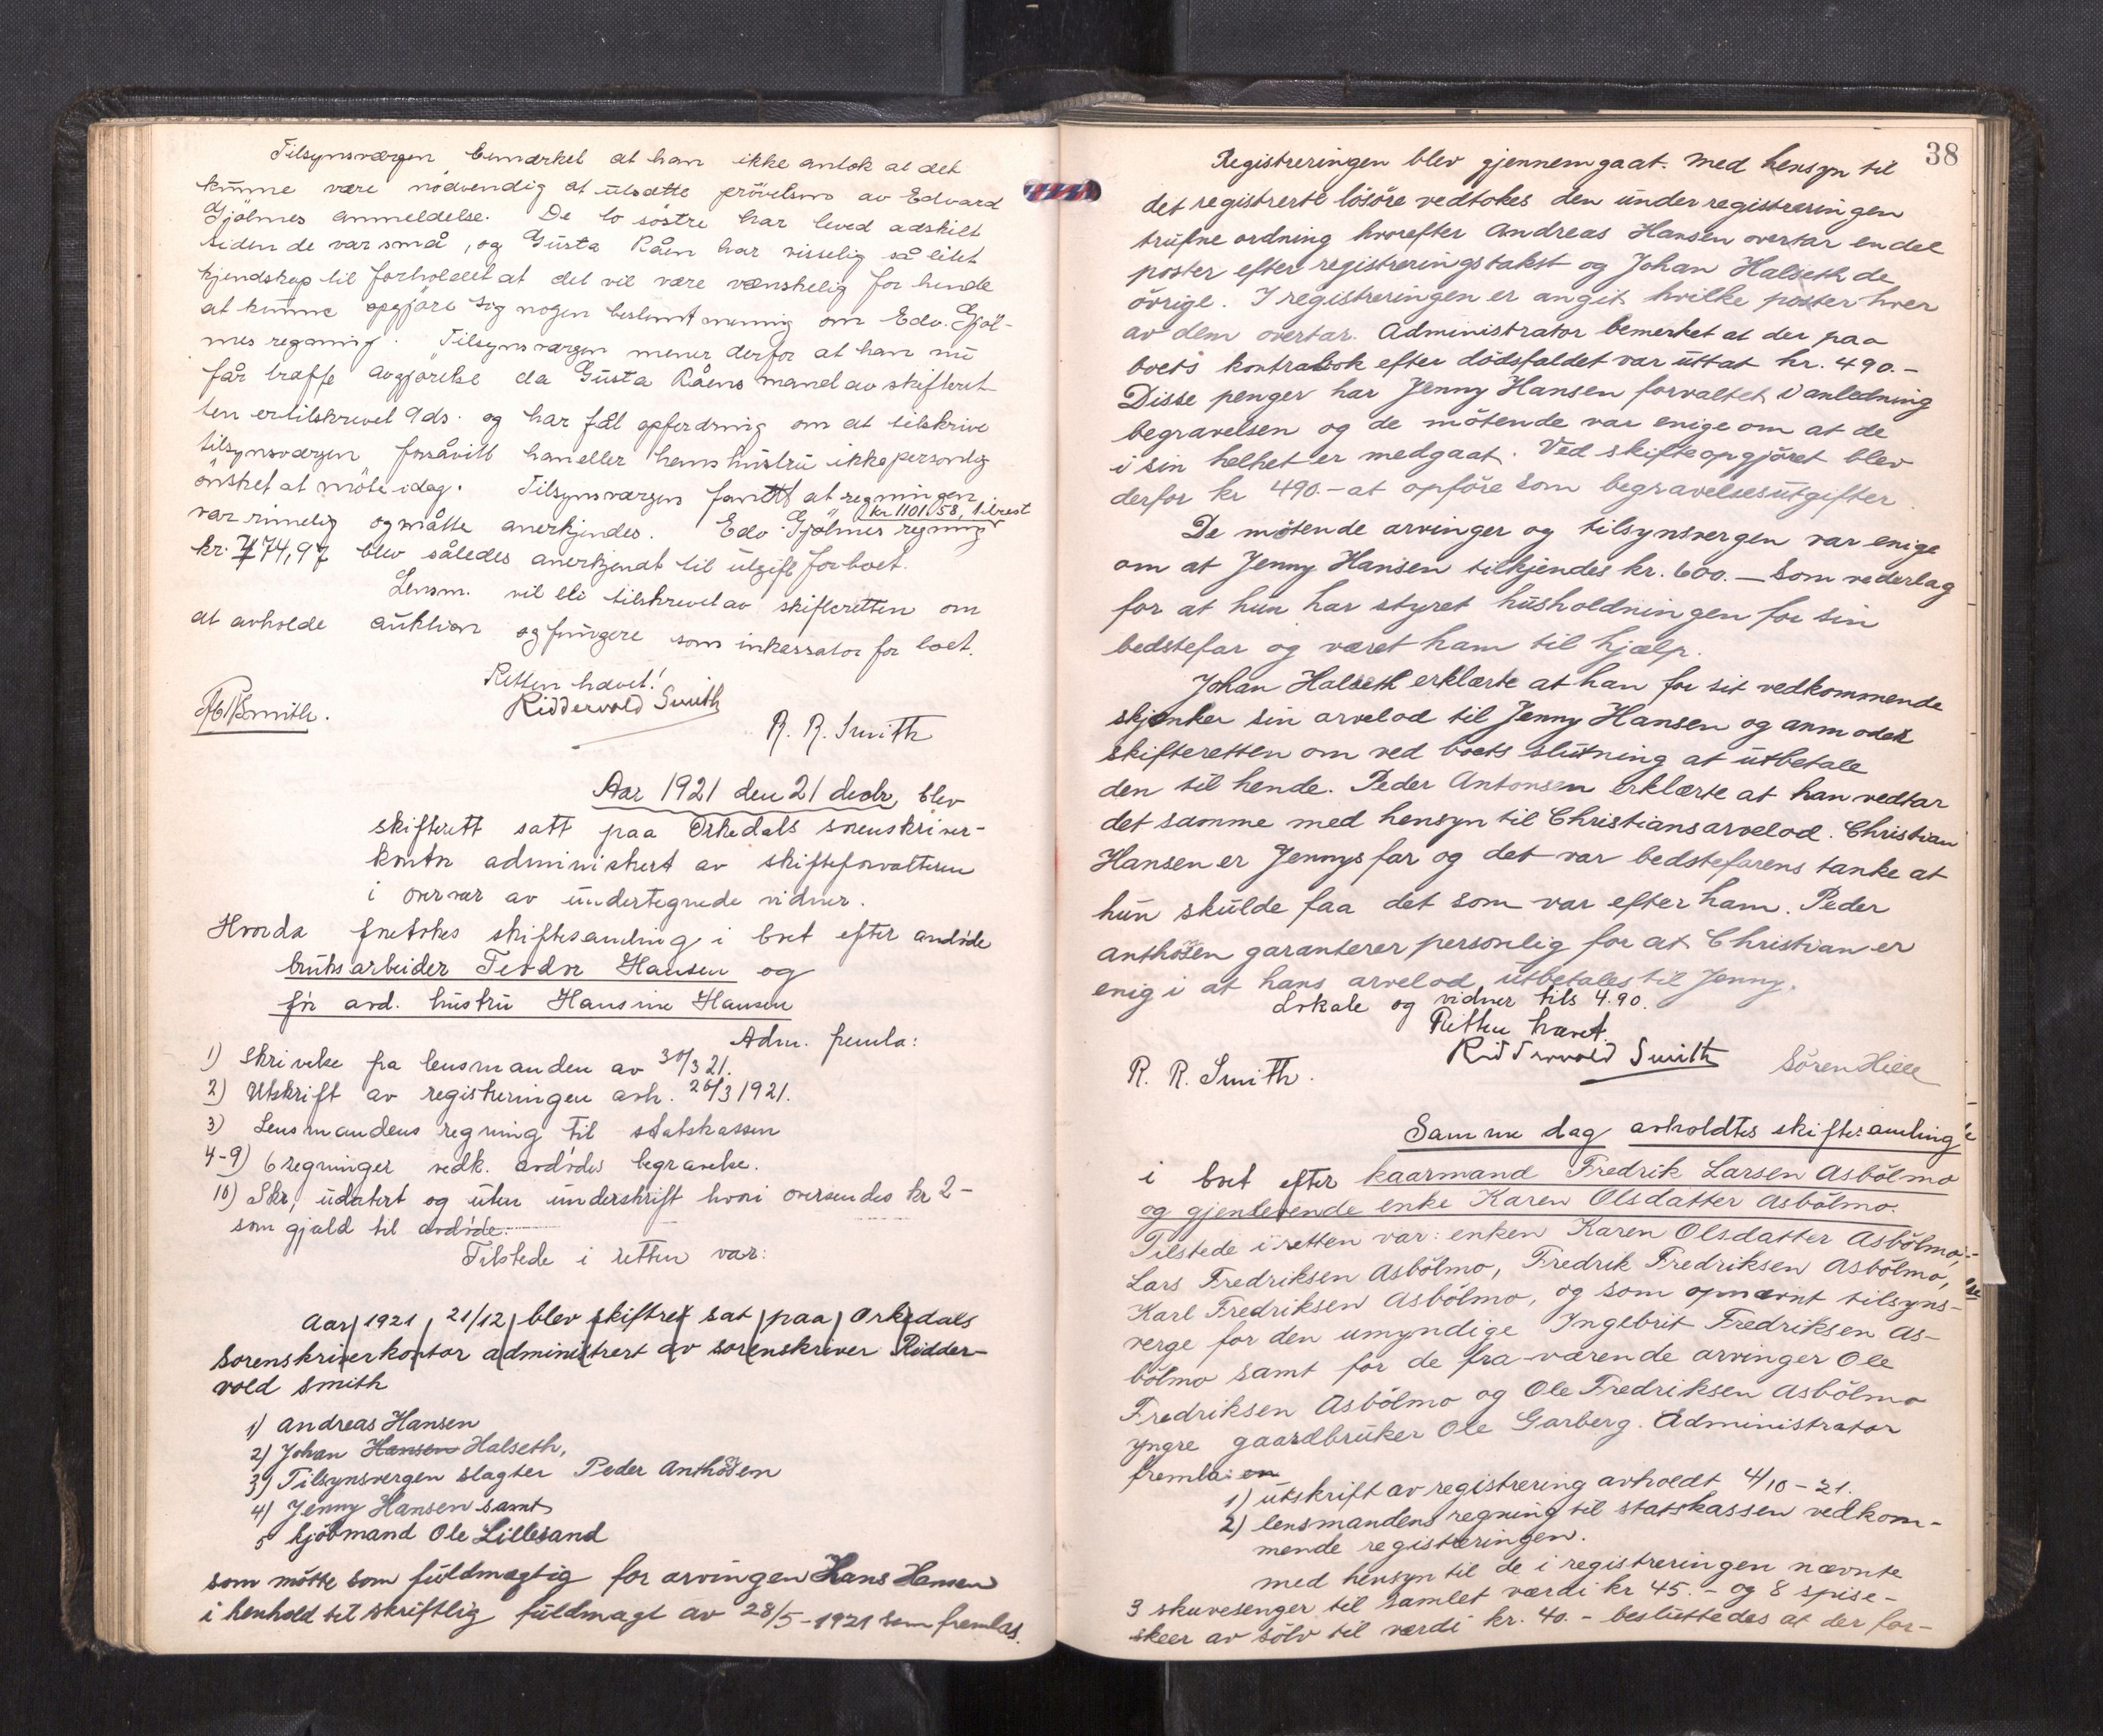 Tilsynsværgen bemærket at han ikke antok at det
kunne være nödvendig at utsætte prövelsen av Edvard
Gjölmes anmeldelse. De to söstre har leved adskilt
siden de var små, og Gusta Råen har visselig så litet
kjendskap til forholdet at det vil være vanskelig for hende
at kunne opgjöre sig nogen bestemt mening om Edv. Gjöl-
mes regning. Tilsynsværgen mener derfor at han nu
får træffe avgjörelse da Gusta Råens mand av skifteret-
ten er tilskrevet 9ds. og har fåt opfordring om at tilskrive
tilsynsværgen forsåvitt han eller hans hustru ikke personlig
önsket at möte idag. Tilsynsværgen fandt at regningen
var rimelig og måtte anerkjendes. Edv. Gjölmes regning
kr 1101,58, tilrest
kr. 774,97 blev således anerkjendt til utgift for boet.
Lensm. vil bli tilskrevet av skifteretten om
at avholde auktion og fungere som inkassator for boet.
Retten hævet!
Riddervold Smith
R. R. Smith
Aar 1921 den 21 decbr blev
skifterett satt paa Orkedals sorenskriver-
kontor administrert av skifteforvalteren
i overvær av undertegnede vidner.
Hvorda foretokes skiftesamling i boet efter avdöde
bruksarbeider Teodor Hansen og
för avd. hustru Hansine Hansen
Adm. fremla:
1) Skrivelse fra lensmanden av 30/3 21.
2) Utskrift av registreringen avh. 26/3 1921.
3) Lensmandens regning til statskassen
4-9) 6 regninger vedk. avdödes begravelse.
10) Skr, udatert og uten underskrift hvori oversendes kr 2-
som gjæld til avdöde.
Tilstede i retten var:
Aar 1921, 21/12 blev skifteret sat paa Orkedals
Sorenskriverkontor administrert av sorenskriver Ridder-
vold Smith
1) Andreas Hansen
2) Johan Hansen Halseth,
3) Tilsynsvergen slagter Peder Anthosen
4) Jenny Hansen samt
5 kjöbmand Ole Lillesand
som mötte som fuldmægtig for arvingen Hans Hansen
i henhold til skriftlig fuldmagt av 28/5-1921 som fremlas.
38
Registreringen blev gjennemgaat. Med hensyn til
det registrerte lösöre vedtokes den under registreringen
trufne ordning hvorefter Andreas Hansen overtar endel
poster efter registreringstakst og Johan Halseth de
övrige. I registreringen er angit hvilke poster hver
av dem overtar. Administrator bemerket at der paa
boets kontrabok efter dödsfaldet var uttat kr. 490.-
Disse penger har Jenny Hansen forvaltet i anledning
begravelsen og de mötende var enige om at de
i sin helhet er medgaat. Ved skifteopgjöret blev
derfor kr 490.- at opföre som begravelsesutgifter.
De mötende arvinger og tilsynsvergen var enige
om at Jenny Hansen tilkjendes kr. 600.- som vederlag
for at hun har styret husholdningen for sin
bedstefar og været ham til hjælp.
Johan Halseth erklærte at han for sit vedkommende
skjenker sin arvelod til Jenny Hansen og anmodet
skifteretten om ved boets slutning at utbetale
den til hende. Peder Antonsen erklærte at han vedtar
det samme med hensyn til Christians arvelod. Christian
Hansen er Jennys far og det var bedstefarens tanke at
hun skulde faa det som var efter ham. Peder
Anthosen garanterer personlig for at Christian er
enig i at hans arvelod utbetales til Jenny.
Lokale og vidner tils 4.90.
Retten hævet.
Riddervold Smith
R. R. Smith.
Sören Hille
Samme dag avholdtes skiftesamling
i boet efter kaarmand Fredrik Larsen Asbölmo
og gjenlevende enke Karen Olsdatter Asbölmo.
Tilstede i retten var: enken Karen Olsdatter Asbölmo,
Lars Fredriksen Asbölmo, Fredrik Fredriksen Asbölmo,
Karl Fredriksen Asbölmo, og som opnævnt tilsyns-
verge for den umyndige Ingebrit Fredriksen As-
bölmo samt for de fra-værende arvinger Ole
Fredriksen Asbölmo og Ole Fredriksen Asbölmo
yngre gaardbruker Ole Garberg. Administrator
fremla: en
1) utskrift av registrering avholdt 4/10-21.
2) lensmandens regning til statskassen vedkom-
mende registreringen.
med hensyn til de i registreringen nævnte
3 skuvesenger til samlet værdi kr 45.- og 8 spise-
skeer av sölv til værdi kr. 40.- besluttedes at der for-